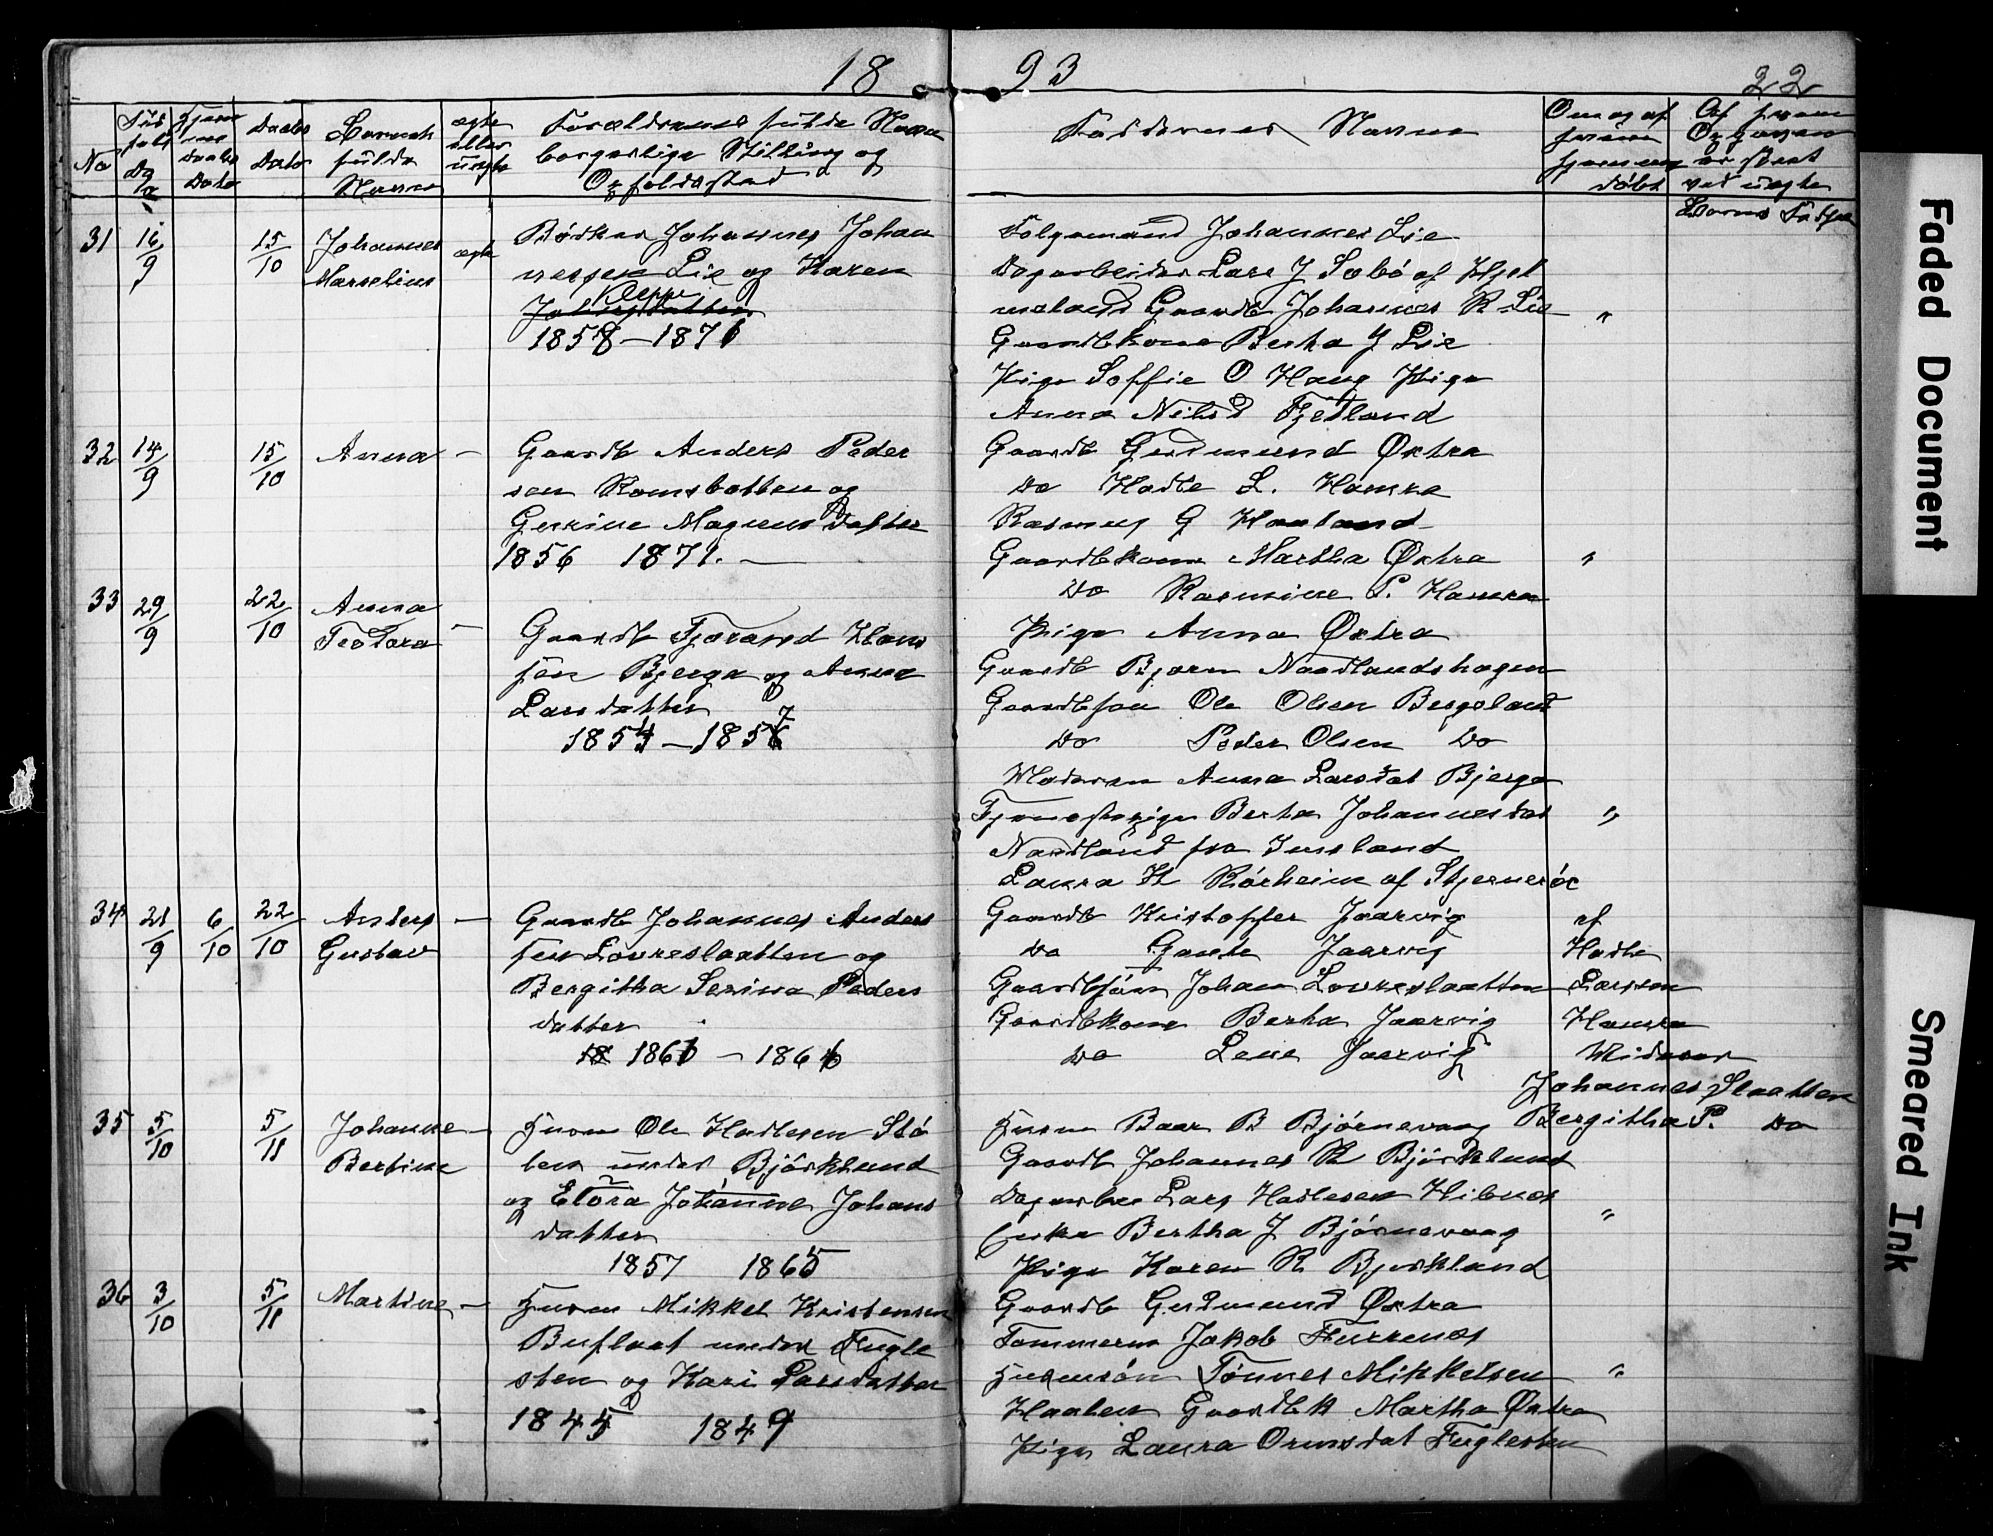 1893
22
No
Født
Dg
Hjem
me
Daabs
Dato
Daabs
Dato
Barnets
fulde
Navn
ægte
eller
uægte
Forældrenes fulde Navn
borgerlige Stilling og
Opholdssted
Faddernes Navne
Om og af
hvem
hjemme
døbt
Af hvem
Opgaven
er skeet
ved uægte
Børns Fader
31 16/9 15/10 Johannes ægte Bødker Johannes Johan
Marselius nessen Lie og Karen
Kleppe
Johnsdatter
1858 - 1871
Følgemand Johannes Lie
Dagarbeider Lars J Sæbø af Hjel
meland Gaardb Johannes R Lie "
Gaardbkone Bertha J Lie
Pige Soffie O Haug Pige
Anna Nilsd Fjetland
32 14/9 15/10 Anna - Gaardb Anders Peder
sen Ramsbotten og
Gurine Magnusdatter
1856 1871. -
Gaardb Gudmund Østra
Do Hadle L. Hamra
Rasmus G Haaland
Gaardbkone Martha Østra "
Do Rasmine P. Hamra
Pige Anna Østra
33 29/9 22/10 Anna -
Teodora Gaardb Tjærand Hans
sen Bjerga og Anna
Larsdatter
1854 - 1857
Gaardb Bjørn Naadlandshagen
Gaardbsøn Ole Olsen Bergeland
Do Peder Olsen Do
Moderen Anna Larsdat Bjerga
Tjenestepige Berta Johannesdat "
Naadland fra Imsland
Laura H Rørheim af Stjernerøe
34 21/9 6/10 22/10 Anders - Gaardb Johannes Anders
Gustav sen Lovreslaatten og
Bergitha Serina Peders
datter
18 1861 - 1866
Gaardb Kristoffer Jaarvig af
Do Gaute Jaarvig Hadle
Gaardbsøn Johan Lovreslaatten Larssen
Gaardbkone Berta Jaarvig Hamra
Do Lene Jaarvig Widner
Johannes Slaatten
Bergitha P. Do
35 5/10 5/11 Johanne - Husm Ole Hadlesen Stø
Bertine len under Bjørklund
og Elora Johanne Johans
datter
1857 1865
Husm Baar B Bjørnevaag
Gaardb Johannes R Bjørklund
Dagarbei Lars Hadlesen Hibnes "
Enke Bertha J Bjørnevaag
Pige Karen R Bjørkland
36 3/10 5/11 Martine - Husm Mikkel Kristensen
Buflaat under Fugle
sten og Kari Larsdatter
1845 1849
Gaardb Gudmund Østra
Tømmerm Jakob Furrenes
Husmsøn Tønnes Mikkelsen "
Haalen Gaardbk Martha Østra
Pige Laura Ormsdat Fuglesten
Faded Document
Smeared Ink